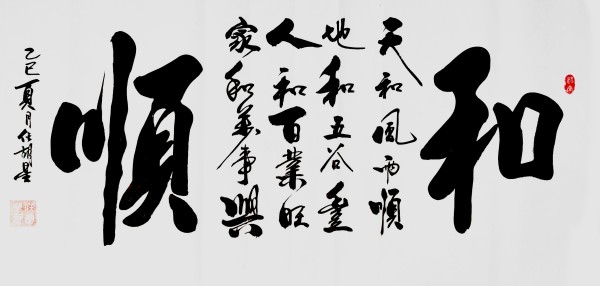 和
天和風雨順
地和五谷豊
人和百業旺
家和萬事興
順
乙巳夏月任胡星